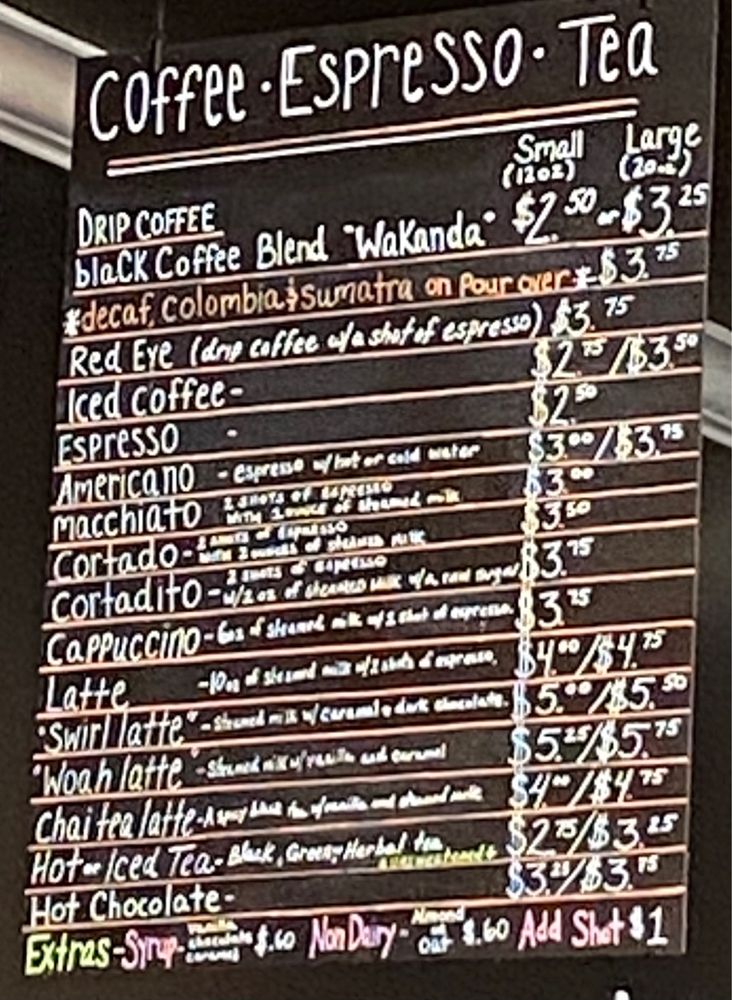 Coffee · Espresso · Tea
Small Large
(12oz) (20oz)
DRIP COFFEE
blaCK Coffee Blend "WaKanda" $2.50 or $3.25
*decaf, Colombia & Sumatra on Pour over * $3.75
Red Eye (drip coffee w/a shot of espresso) $3.75
Iced Coffee - $2.75/$3.50
Espresso - $2.50
Americano - espresso w/hot or cold water $3.00/$3.75
Macchiato 2 SHOTS OF ESPRESSO WITH 1 ounce of steamed milk $3.00
Cortado - 2 SHOTS OF ESPRESSO WITH 2 ounces of steamed milk $3.50
Cortadito - 2 SHOTS OF ESPRESSO w/2 oz of steamed milk w/a raw sugar $3.75
Cappuccino - 6oz of steamed milk w/2 shot of espresso. $3.75
Latte - 10oz of steamed milk w/2 shots of espresso. $4.00/$4.75
"Swirl latte" - Steamed milk w/ caramel & dark chocolate. $5.00/$5.50
"Woah latte" - Steamed milk w/vanilla and caramel $5.25/$5.75
Chai tea latte - A spicy black tea w/vanilla and steamed milk $4.00/$4.75
Hot or Iced Tea - Black, Green, Herbal tea *unsweetened* $2.75/$3.25
Hot Chocolate - $3.25/$3.75
Extras - Syrup - Vanilla chocolate caramel $.60 Non Dairy - Almond or Oat $.60 Add Shot $1